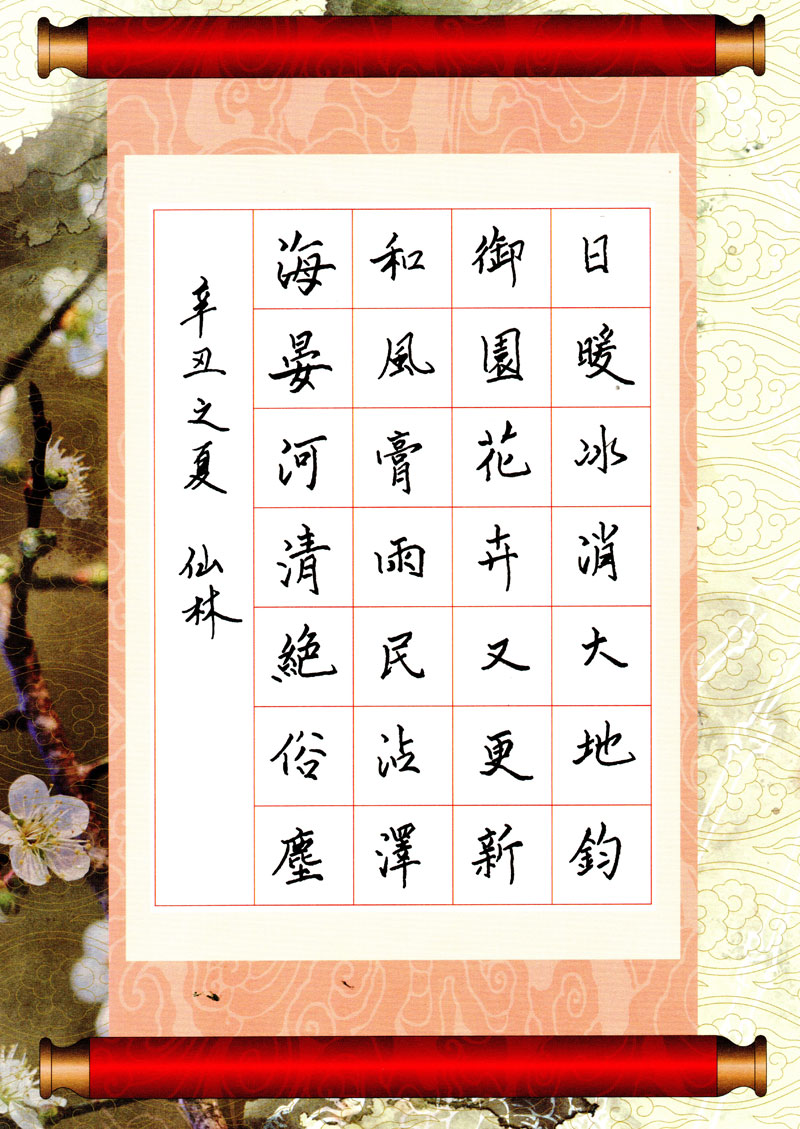 日暖冰消大地鈞
御園花卉又更新
和風膏雨民沾澤
海晏河清絕俗塵
辛丑之夏 仙林